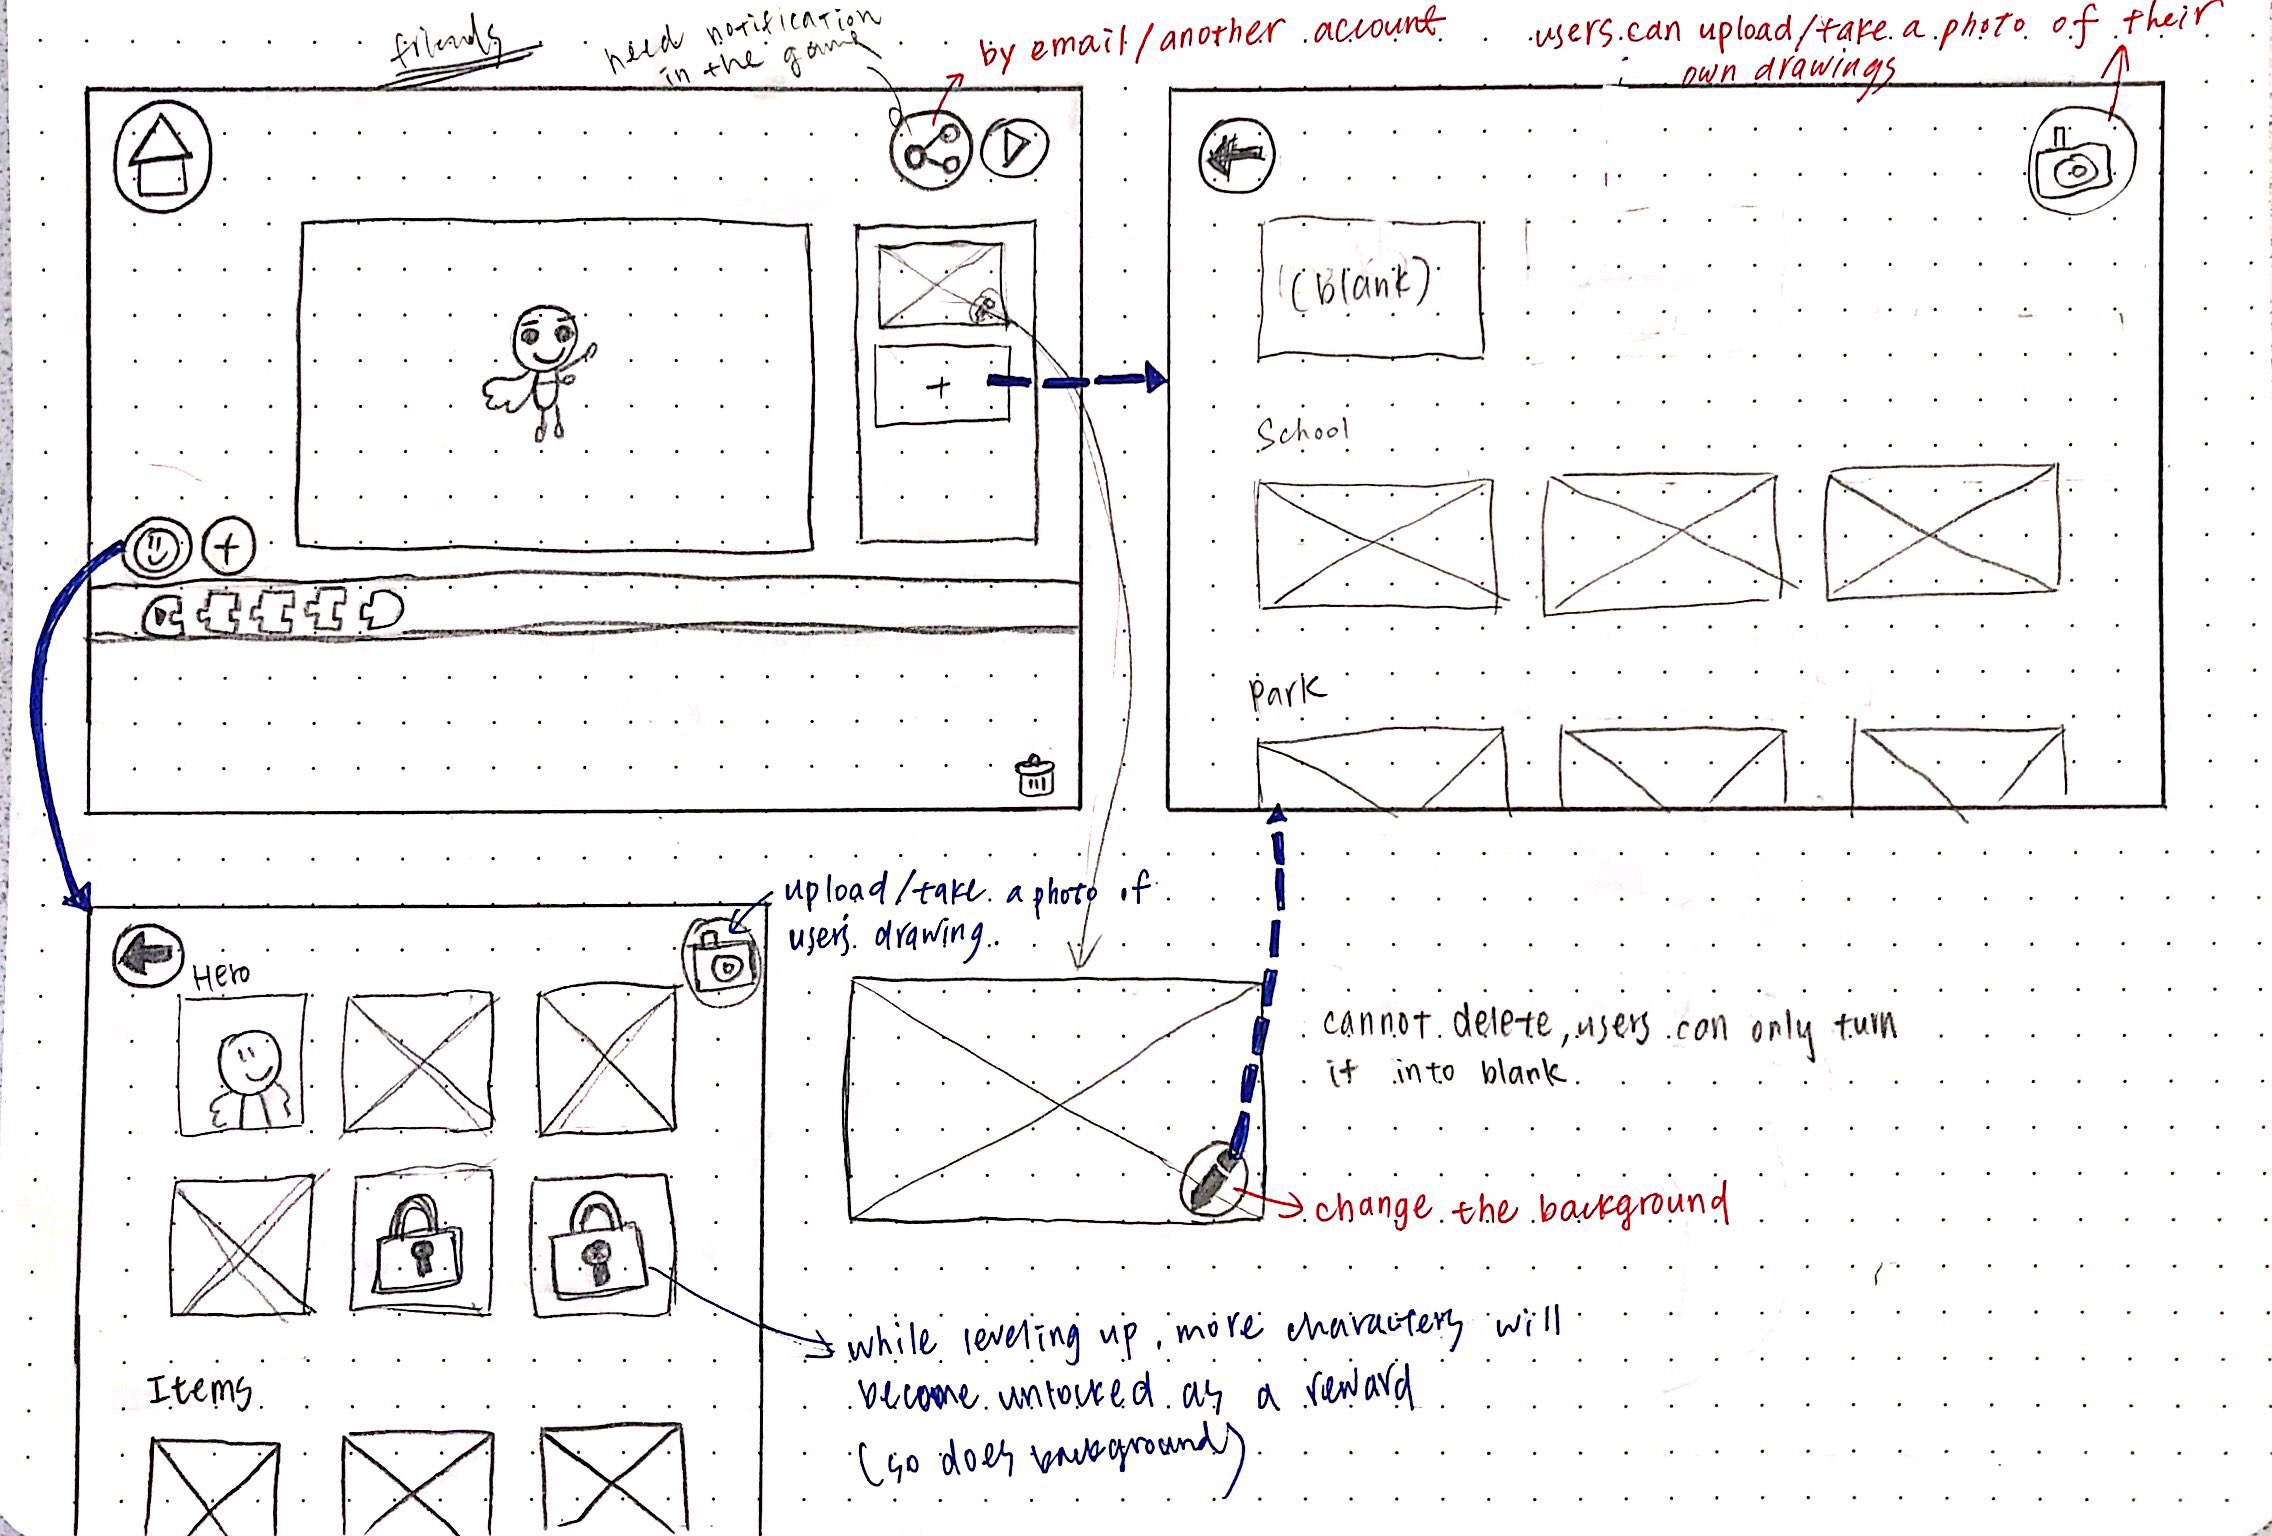 friends
need notification
in the game
by email/another account
users can upload/take a photo of their
own drawings
(blank)
School
Park
upload/take a photo of
users drawing.
Hero
cannot delete, users can only turn
it into blank.
change the background
while leveling up, more characters will
become unlocked as a reward
(so does background)
Items